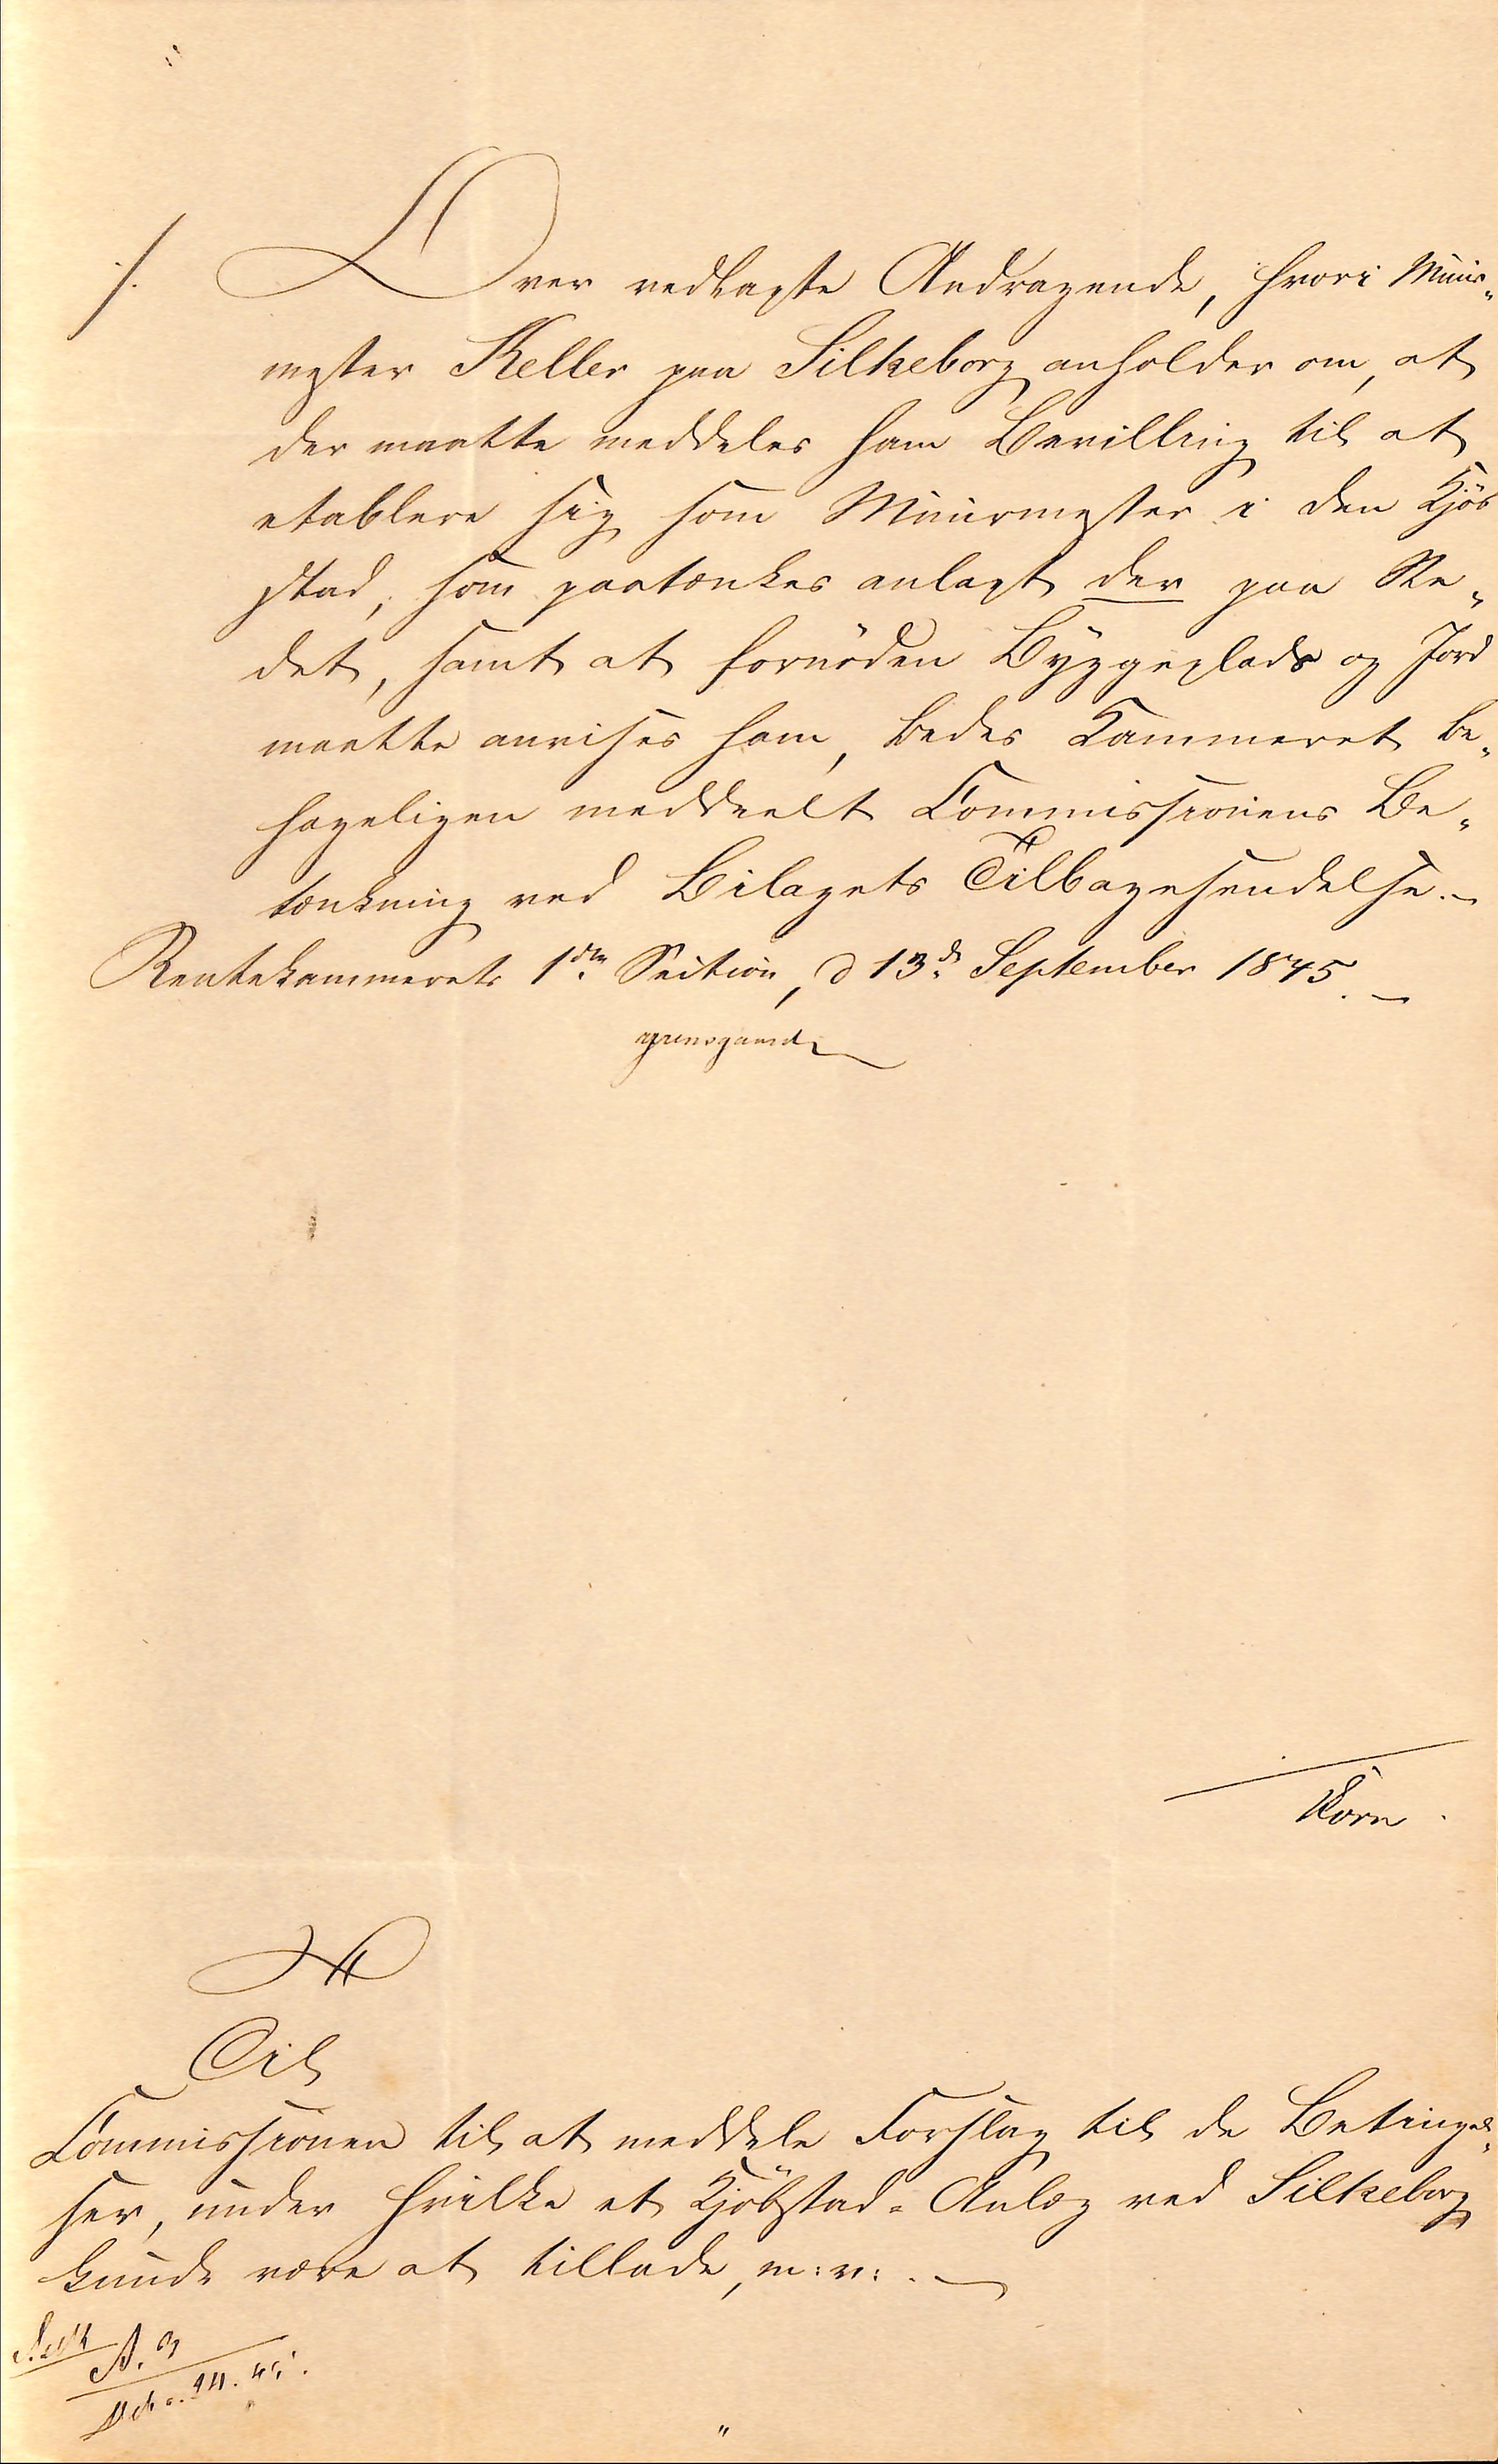 ./.
Over vedlagte Andragende, hvori Muur-
mester Keller paa Silkeborg anholder om, at
der maatte meddeles ham Bevilling til at
etablere sig som Muurmester i den Kjøb
stad, som paatænkes anlagt der paa Ste-
det, samt at fornøden Byggeplads og Jord
maatte anvises ham, bedes Kammeret be-
hageligen meddeelt Commissionens Be-
tænkning ved Bilagets Tilbagesendelse.-
Rentekammerets 1ste Section, d 13de September 1845.-
Til
Commissionen til at meddele Forslag til de Betingel-
ser, under hvilke et Kjøbstad-Anlæg ved Silkeborg
kunde være at tillade, m:v:.-